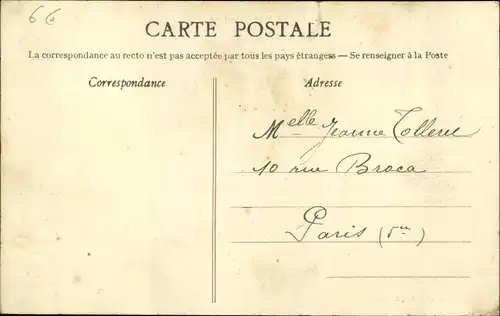 6€
CARTE POSTALE
La correspondance au recto n'est pas acceptée par tous les pays étrangess — Se renseigner à la Poste
Correspondance
Adresse
Melle Jeanne
10 rue Broca
Paris (Ve)